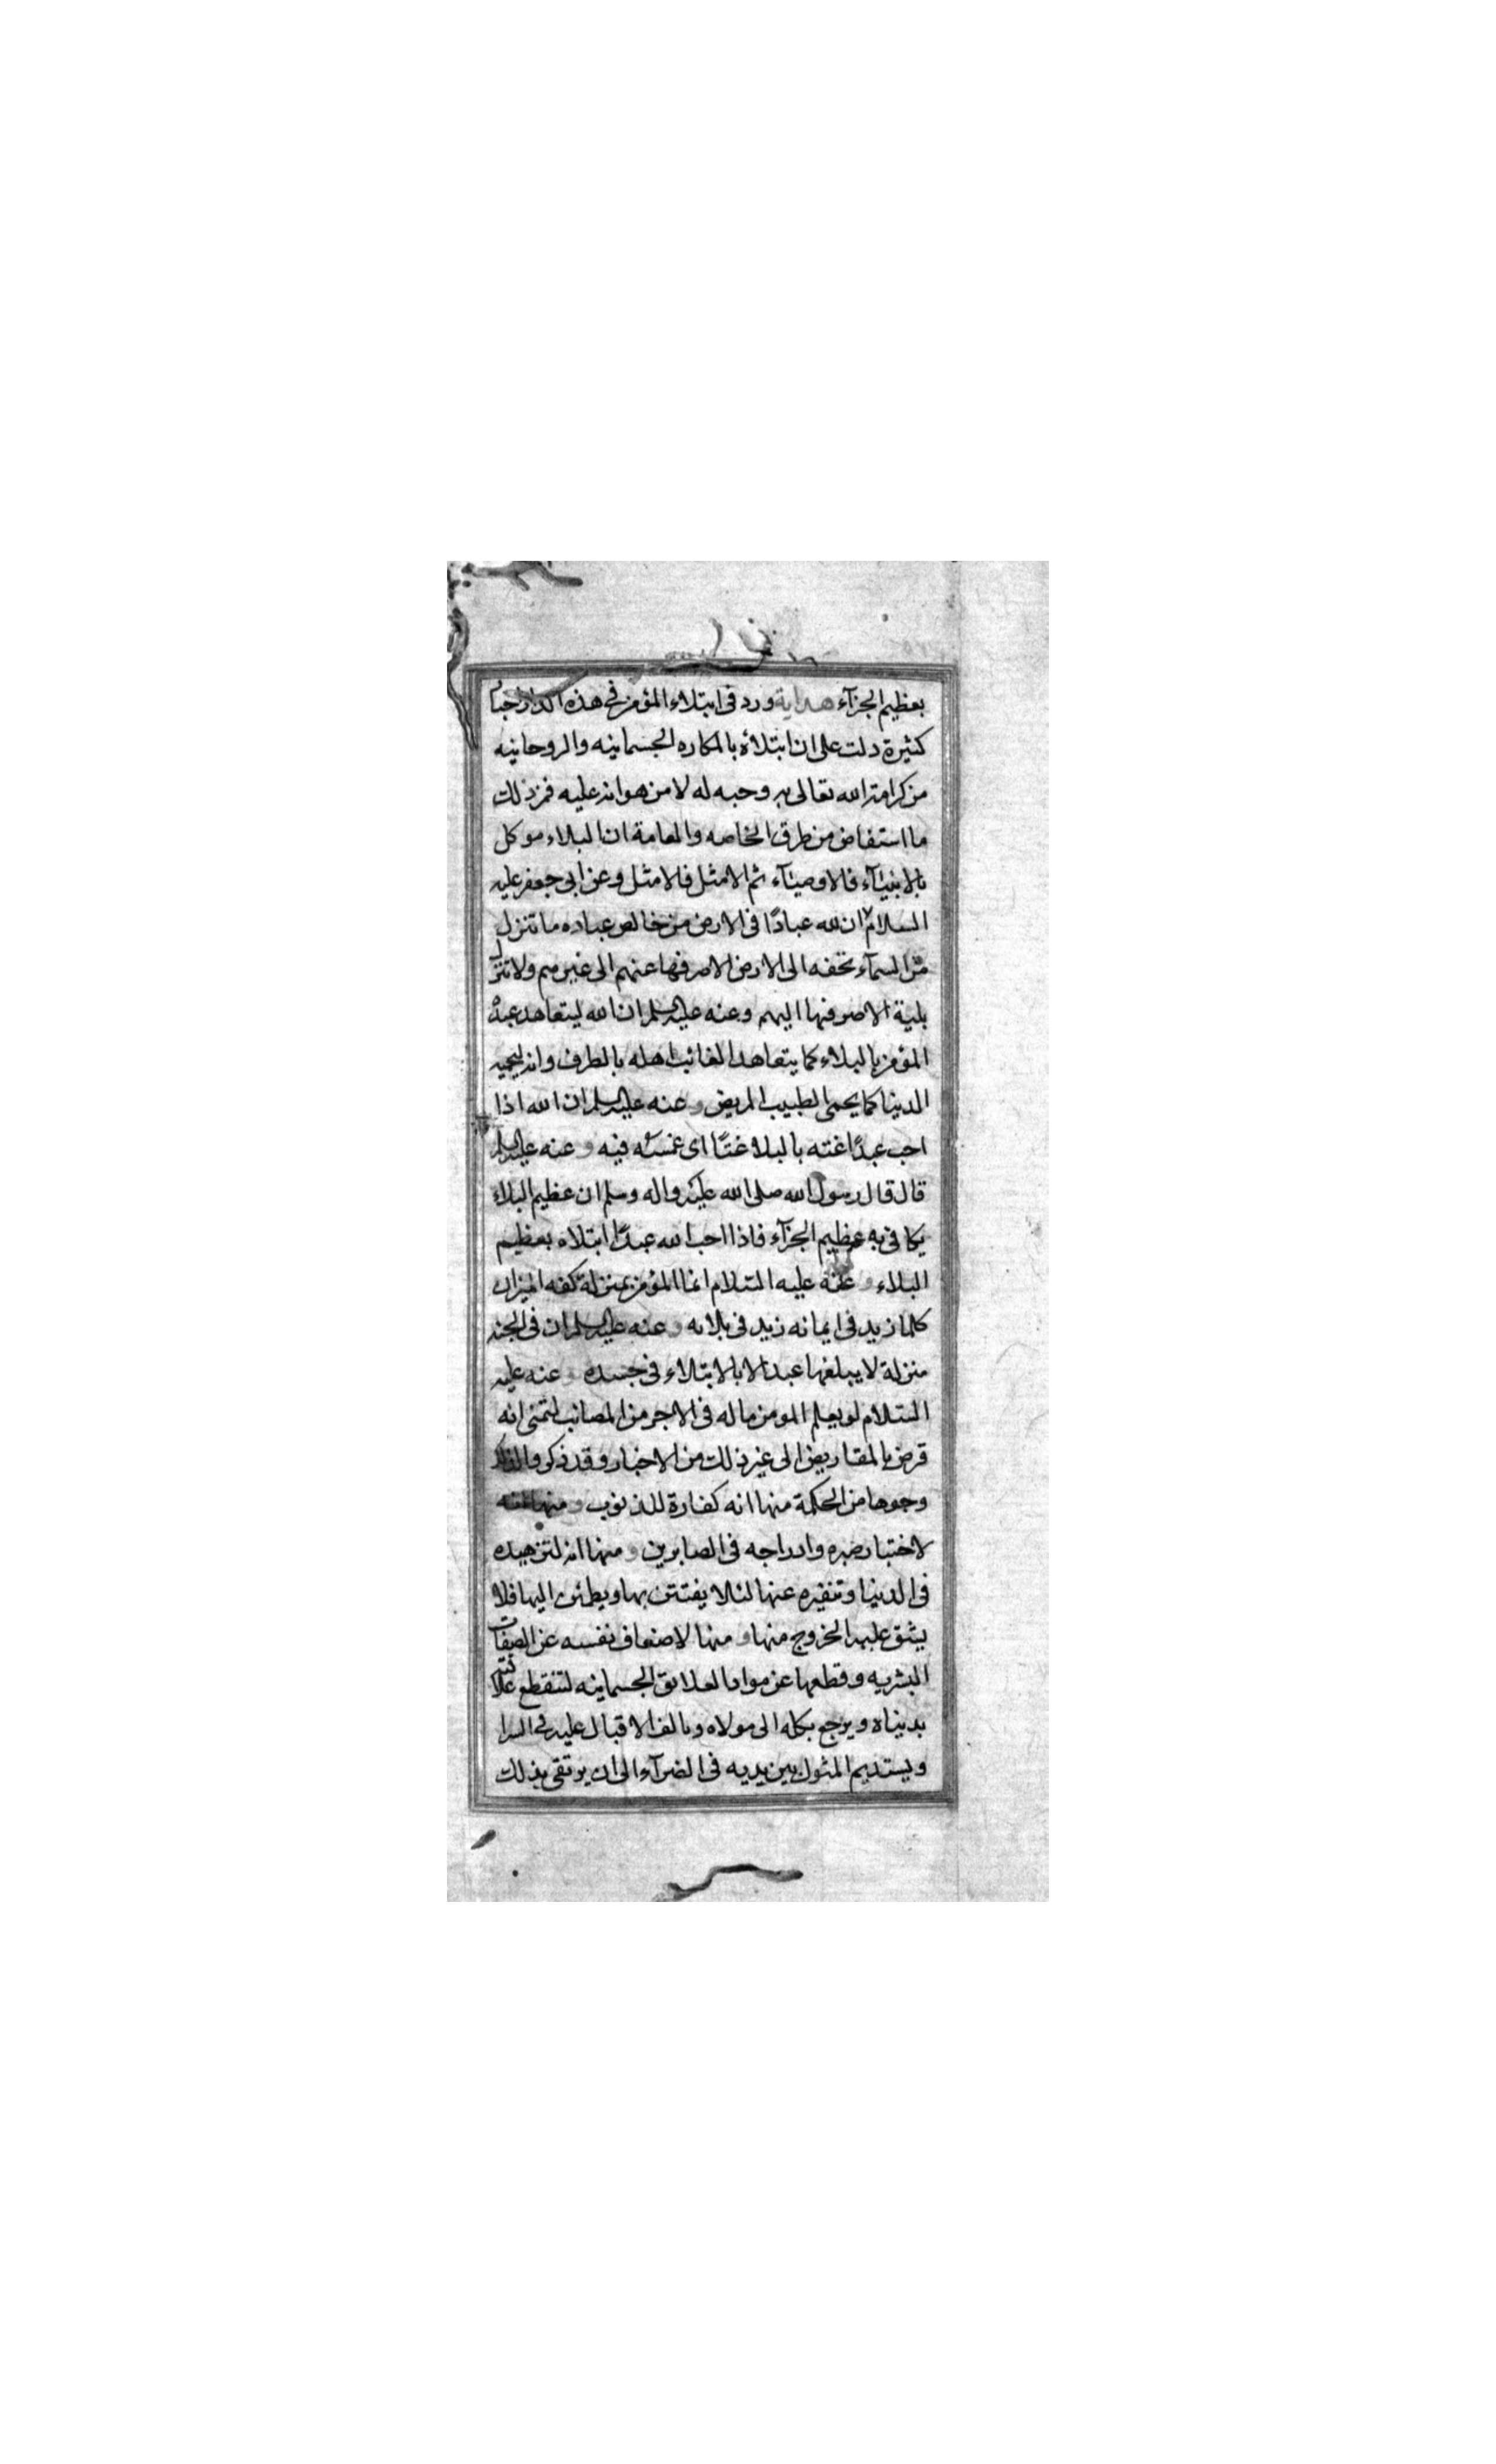 بعظيم الجزآء هداية ورد في ابتلاء المؤمن في هذه الدار اخبار
كثيرة دلت على ان ابتلاءه بالمكاره الجسمانيه والروحانيه
من كرامة الله تعالى به وحبه له لا من هوانه عليه فمن ذلك
ما استفاض من طرق الخاصه والعامة ان البلاء موكل
بالانبيآء فالاوصيآء ثم الامثل فالامثل وعن ابي جعفر عليه
السلام ان لله عبادًا في الارض من خالص عباده ما تنزل
من السمآء تحفه الى الارض الا صرفها عنهم الى غيرهم ولا تنزل
بلية الا صرفها اليهم وعنه عليه السلم ان الله ليتعاهد عبده
المؤمن بالبلاء كما يتعاهد الغائب اهله بالطرف وانه ليحميه
الدينا كما يحمى الطبيب المريض و عنه عليه السلم ان الله اذا
احب عبدًا غته بالبلاء غتًا اى غمسه فيه و عنه عليه السلم
قال قال رسول الله صلى الله عليه واله وسلم ان عظيم البلاء
يكافى به عظيم الجزآء فاذا احب الله عبدًا ابتلاه بعظيم
البلاء و عنه عليه السلام انما المؤمن بمنزلة كفه الميزان
كلما زيد في ايمانه زيد في بلائه و عنه عليه السلم ان في الجنه
منزلة لا يبلغها عبد الا بالابتلاء في جسده و عنه عليه
السلام لو يعلم المومن ما له في الاجر من المصائب لتمنى انه
قرض بالمقاريض الى غير ذلك من الاخبار وقد ذكروا لذلك
وجوها من الحكمة منها انه كفارة للذنوب و منها انه
لاختبار صبره وادراجه في الصابرين و منها انه لتزهيده
في الدنيا وتنفيره عنها لئلا يفتتن بها ويطمئن اليها فلا
يشق عليه الخروج منها و منها لاضعاف نفسه عن الصفات
البشريه وقطعها عن مواد العلائق الجسمانيه لتنقطع علائقه
بدنياه ويرجع بكله الى مولاه ويالف الاقبال عليه في السرا
ويستديم المثول بين يديه في الضرآء الى ان يرتقى بذلك